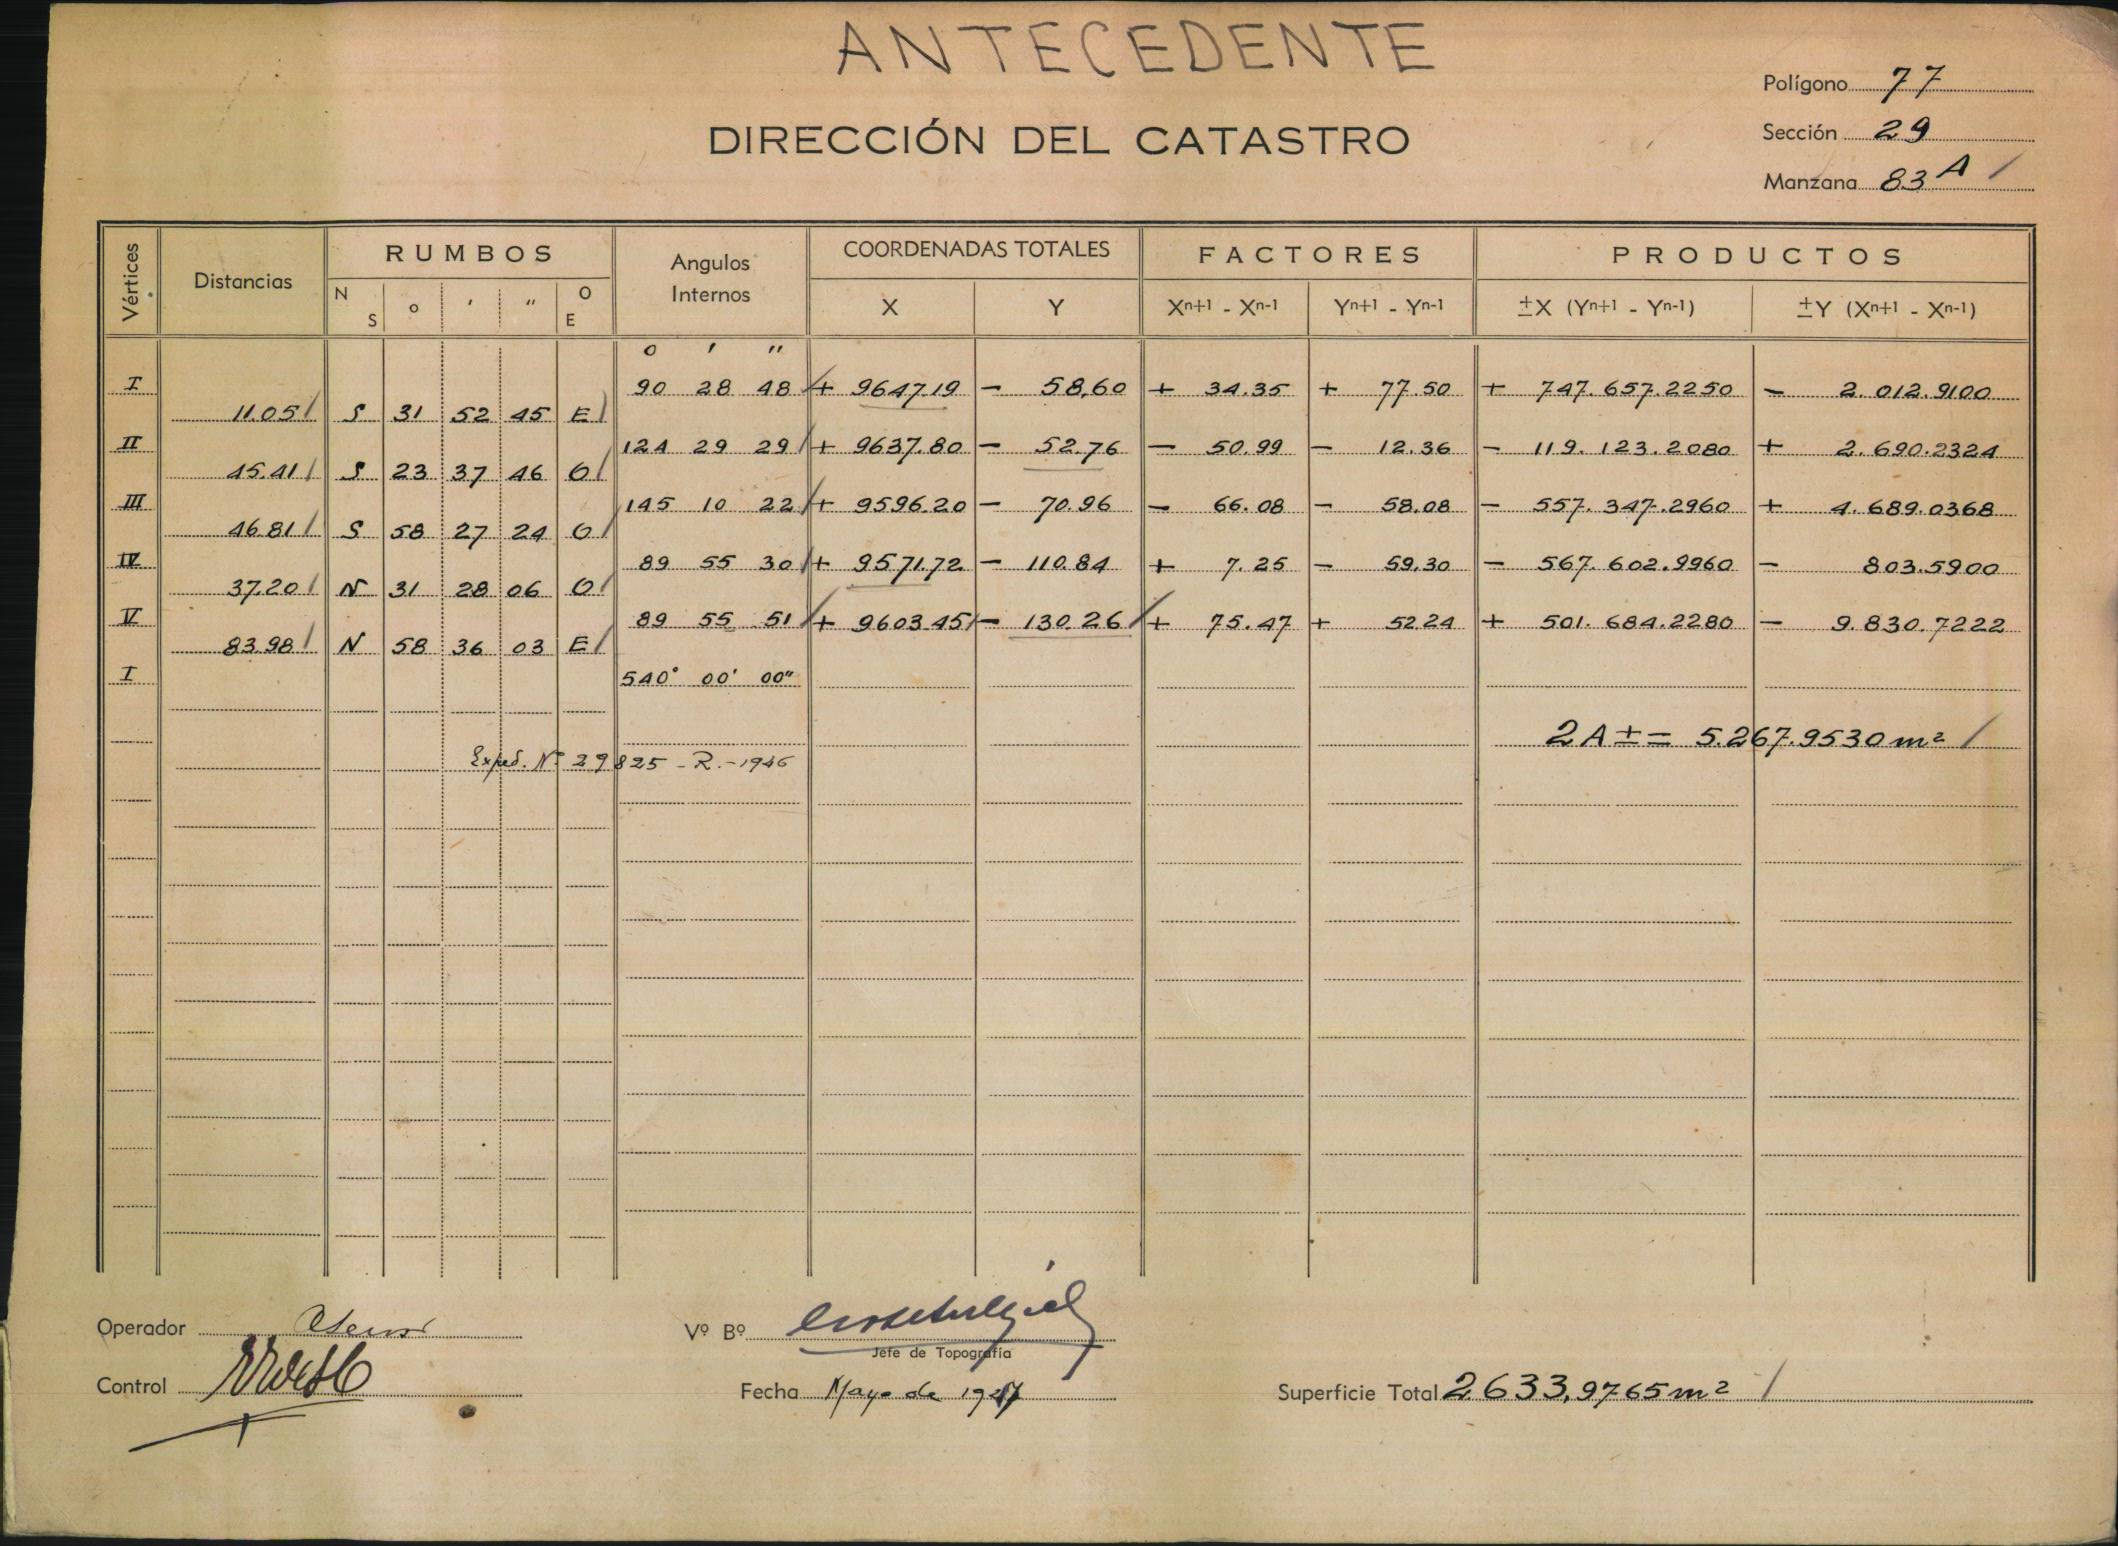 ANTECEDENTE
Polígono 77
DIRECCIÓN DEL CATASTRO
Sección 29
Manzana 83 A /
Vértices Distancias RUMBOS Angulos Internos COORDENADAS TOTALES FACTORES PRODUCTOS
N S o ' " O E X Y Xn+1 - Xn-1 Yn+1 - Yn-1 ±X (Yn+1 - Yn-1) ±Y (Xn+1 - Xn-1)
o ' "
I 90 28 48 + 9647.19 - 58,60 + 34.35 + 77.50 + 747.657.2250 - 2.012.9100
11.05 S 31 52 45 E
II 124 29 29 + 9637.80 - 52.76 - 50.99 - 12.36 - 119.123.2080 + 2.690.2324
45.41 S 23 37 46 O
III 145 10 22 + 9596.20 - 70.96 - 66.08 - 58.08 - 557.347.2960 + 4.689.0368
46.81 S 58 27 24 O
IV 89 55 30 + 9571.72 - 110.84 + 7.25 - 59.30 - 567.602.9960 - 803.5900
37.20 N 31 28 06 O
V 89 55 51 + 9603.45 - 130.26 + 75.47 + 52.24 + 501.684.2280 - 9.830.7222
83.98 N 58 36 03 E
I 540° 00' 00"
2A ± = 5.267.9530 m²
Exped. Nº 29825 - R. - 1946
Operador
Vº Bº
Jefe de Topografía
Control
Fecha Mayo de 1947
Superficie Total 2633,9765 m²